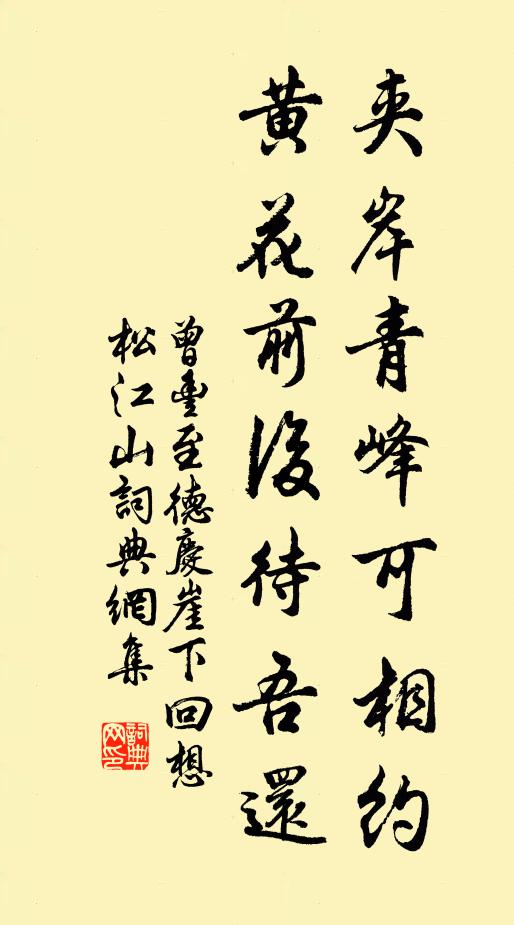 夾岸青峰可相約
黃花前後待吾還
曾豐至德慶崖下回想
松江山詞典網集
詞典網印